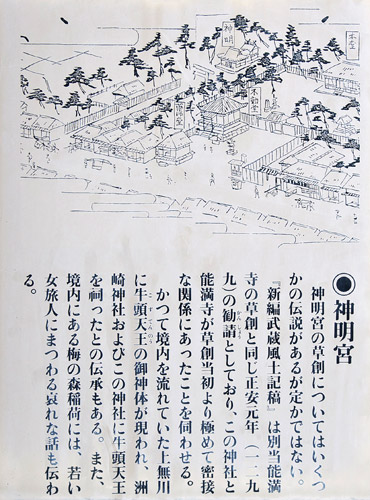 神明
不動堂
◉神明宮
神明宮の草創についてはいくつ
かの伝説があるが定かではない。
『新編武蔵風土記稿』は別当能満
寺の草創と同じ正安元年（一二九
九）の勧請としており、この神社と
能満寺が草創当初より極めて密接
な関係にあったことを伺わせる。
かつて境内を流れていた上無川
に牛頭天王の御神体が現われ、洲
崎神社およびこの神社に牛頭天王
を祠ったとの伝承もある。また、
境内にある梅の森稲荷には、若い
女旅人にまつわる哀れな話も伝わ
る。